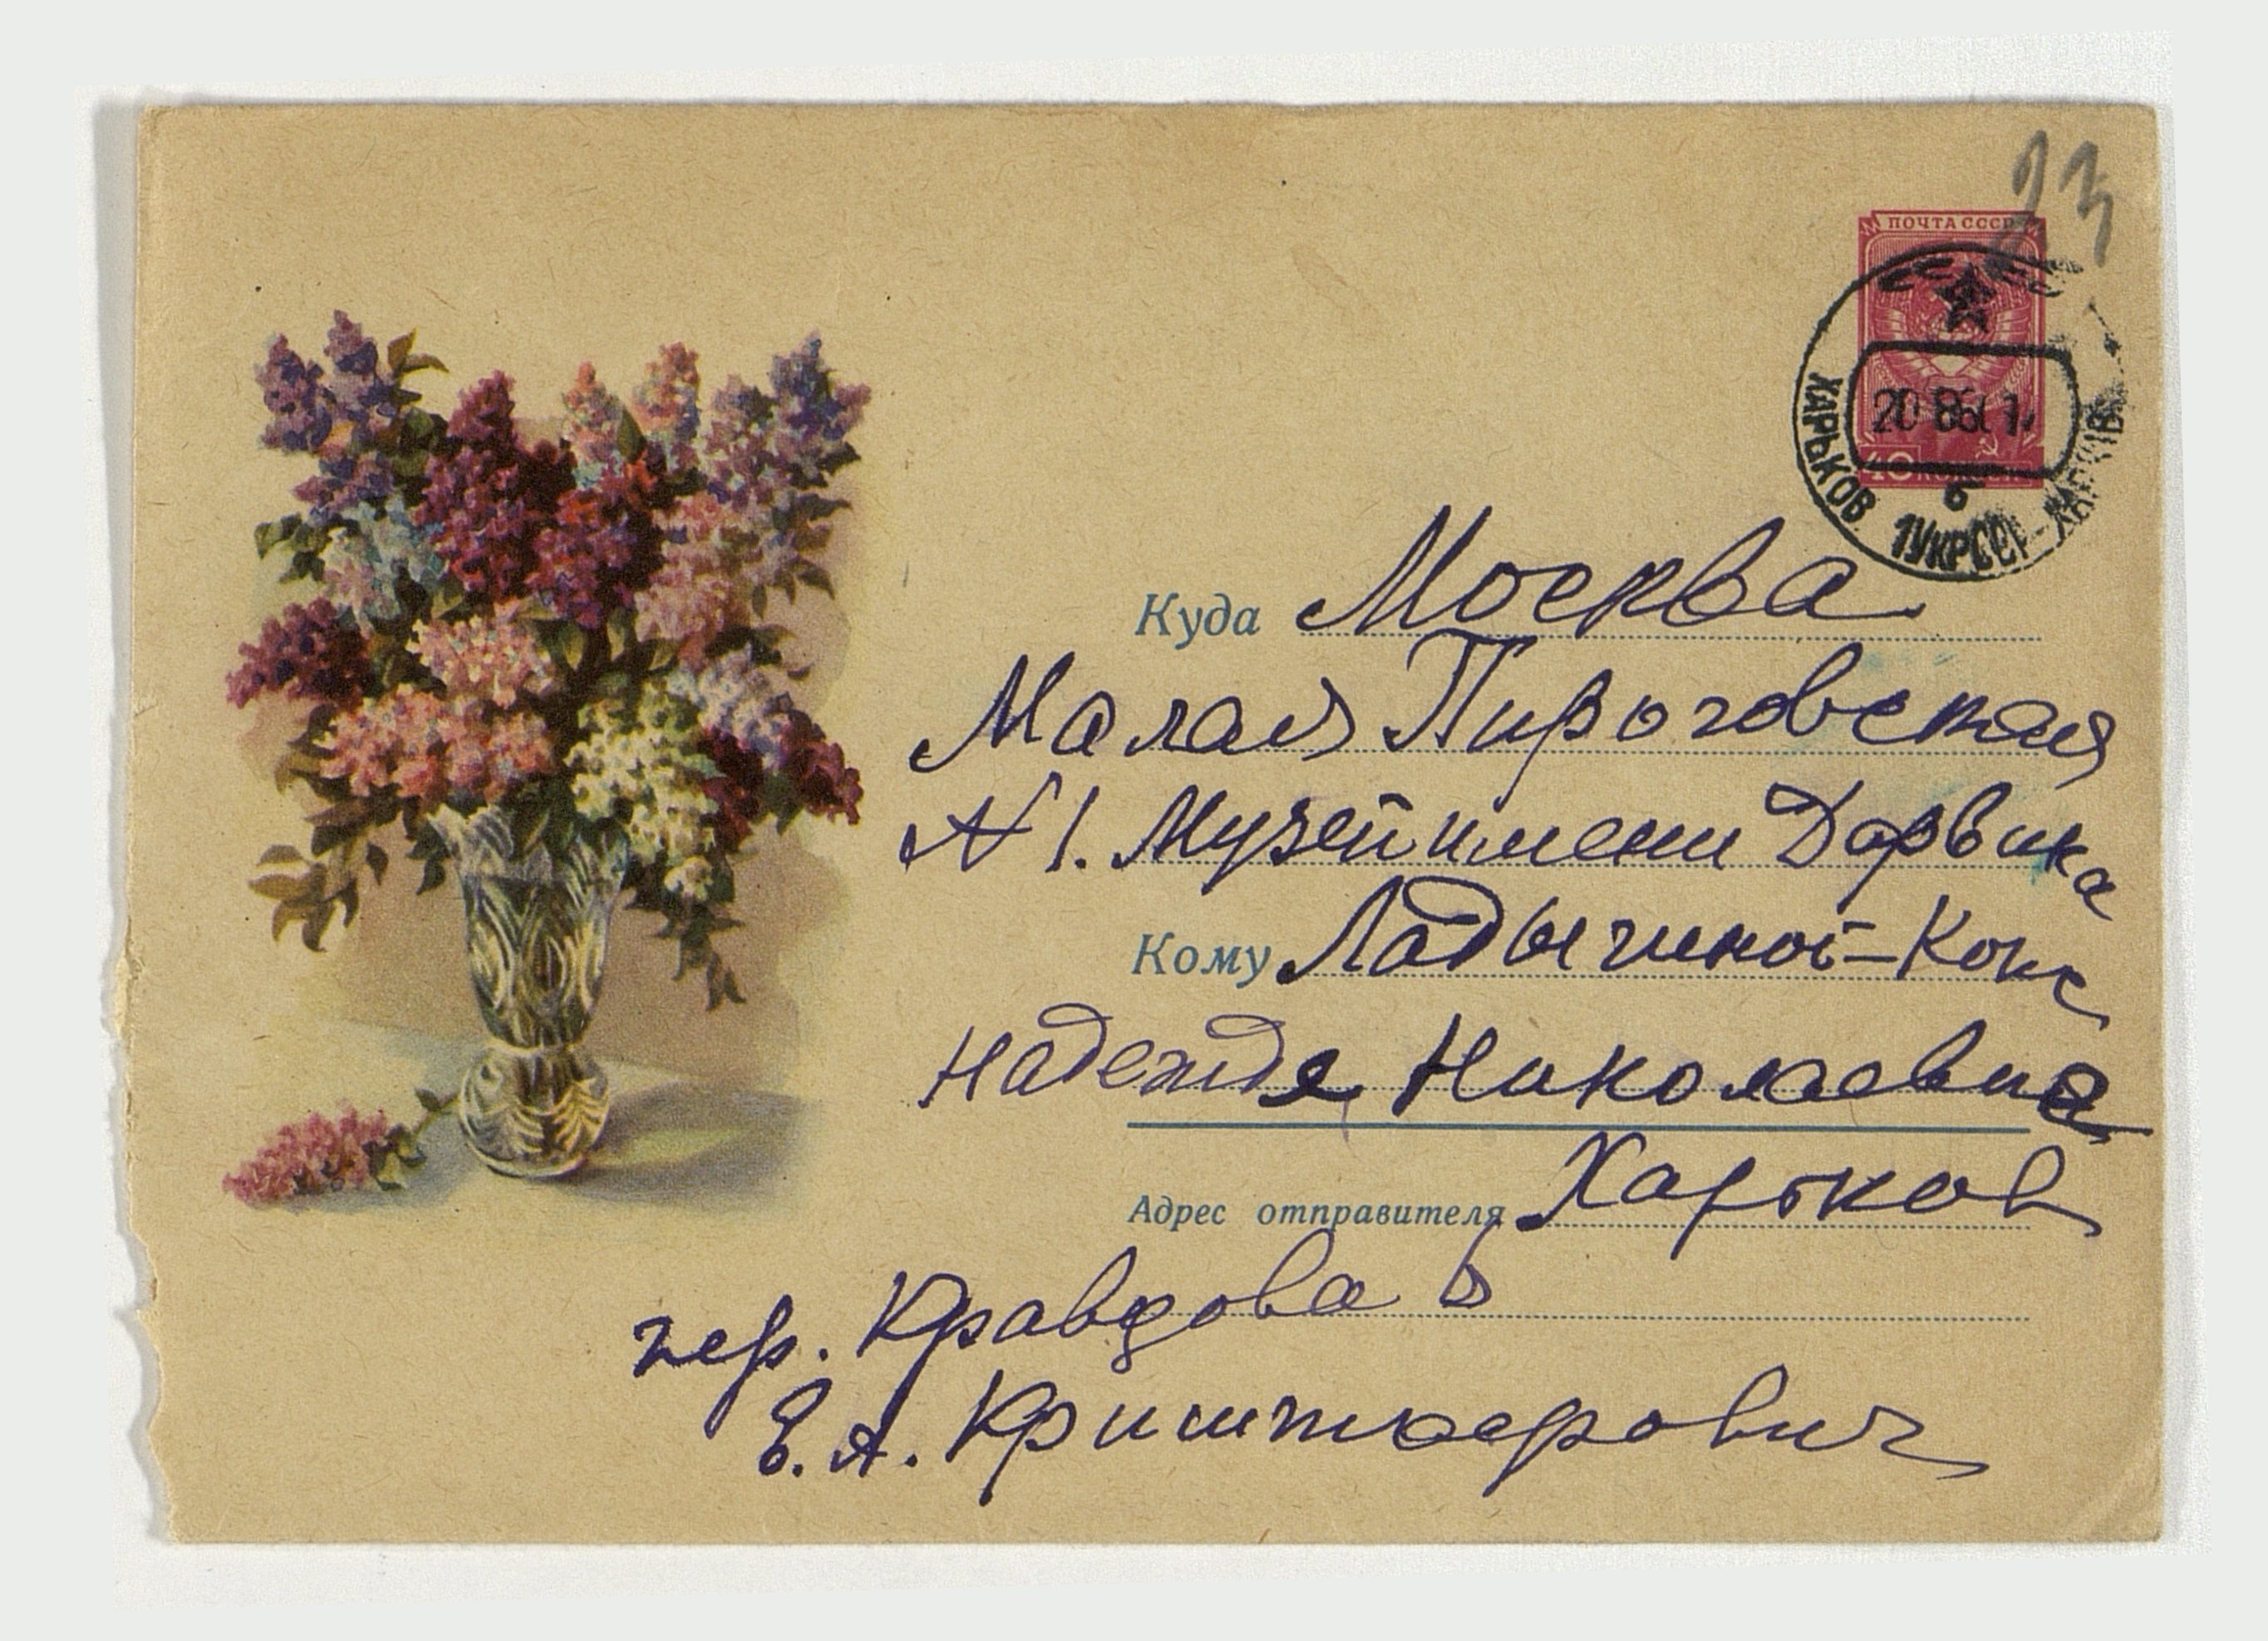 23
ПОЧТА СССР
40
ХАРЬКОВ
20
6
Куда Москва
Малая Пироговская
N 1. Музей имени Дарвина
Кому Ладыгиной-Котс
Надежде Николаевне
Адрес отправителя Харьков
пер. Кравцова
Е. А.